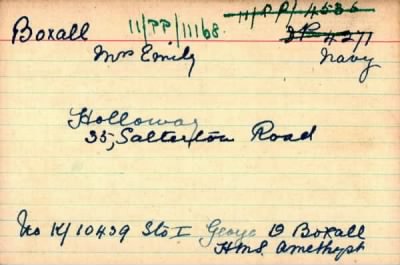 Boxall 11/PP/11168 11/PP/4535
3P 4271
Mrs Emily Navy
Holloway
35, Salterton Road
No K/10439 Sto I George D Boxall
HMS. Amethyst